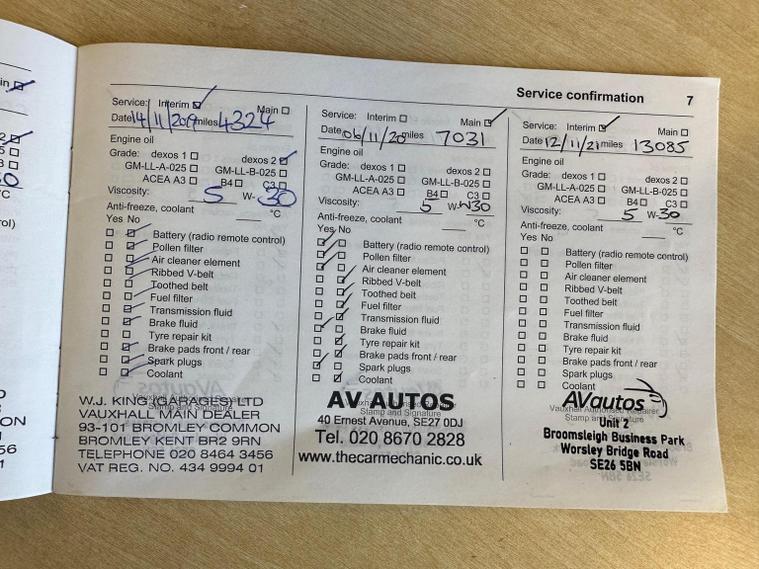 Service confirmation 7
Service: Interim ☑ Main ☐
Date 14/11/2019 miles 4324
Engine oil
Grade: dexos 1 ☐ dexos 2 ☑
GM-LL-A-025 ☐ GM-LL-B-025 ☐
ACEA A3 ☐ B4 ☐ C3 ☐
Viscosity: 5 W- 30
Anti-freeze, coolant °C
Yes No
Battery (radio remote control)
Pollen filter
Air cleaner element
Ribbed V-belt
Toothed belt
Fuel filter
Transmission fluid
Brake fluid
Tyre repair kit
Brake pads front / rear
Spark plugs
Coolant
W.J. KING (GARAGES) LTD
VAUXHALL MAIN DEALER
93-101 BROMLEY COMMON
BROMLEY KENT BR2 9RN
TELEPHONE 020 8464 3456
VAT REG. NO. 434 9994 01
Service: Interim ☐ Main ☑
Date 06/11/20 miles 7031
Engine oil
Grade: dexos 1 ☐ dexos 2 ☐
GM-LL-A-025 ☐ GM-LL-B-025 ☐
ACEA A3 ☐ B4 ☐ C3 ☐
Viscosity: 5 W- W30
Anti-freeze, coolant °C
Yes No
Battery (radio remote control)
Pollen filter
Air cleaner element
Ribbed V-belt
Toothed belt
Fuel filter
Transmission fluid
Brake fluid
Tyre repair kit
Brake pads front / rear
Spark plugs
Coolant
AV AUTOS
Stamp and Signature
40 Ernest Avenue, SE27 0DJ
Tel. 020 8670 2828
www.thecarmechanic.co.uk
Service: Interim ☑ Main ☐
Date 12/11/21 miles 13085
Engine oil
Grade: dexos 1 ☐ dexos 2 ☐
GM-LL-A-025 ☐ GM-LL-B-025 ☐
ACEA A3 ☐ B4 ☐ C3 ☐
Viscosity: 5 W- 30
Anti-freeze, coolant °C
Yes No
Battery (radio remote control)
Pollen filter
Air cleaner element
Ribbed V-belt
Toothed belt
Fuel filter
Transmission fluid
Brake fluid
Tyre repair kit
Brake pads front / rear
Spark plugs
Coolant
AVautos
Vauxhall Authorised Repairer
Unit 2
Broomsleigh Business Park
Worsley Bridge Road
SE26 5BN